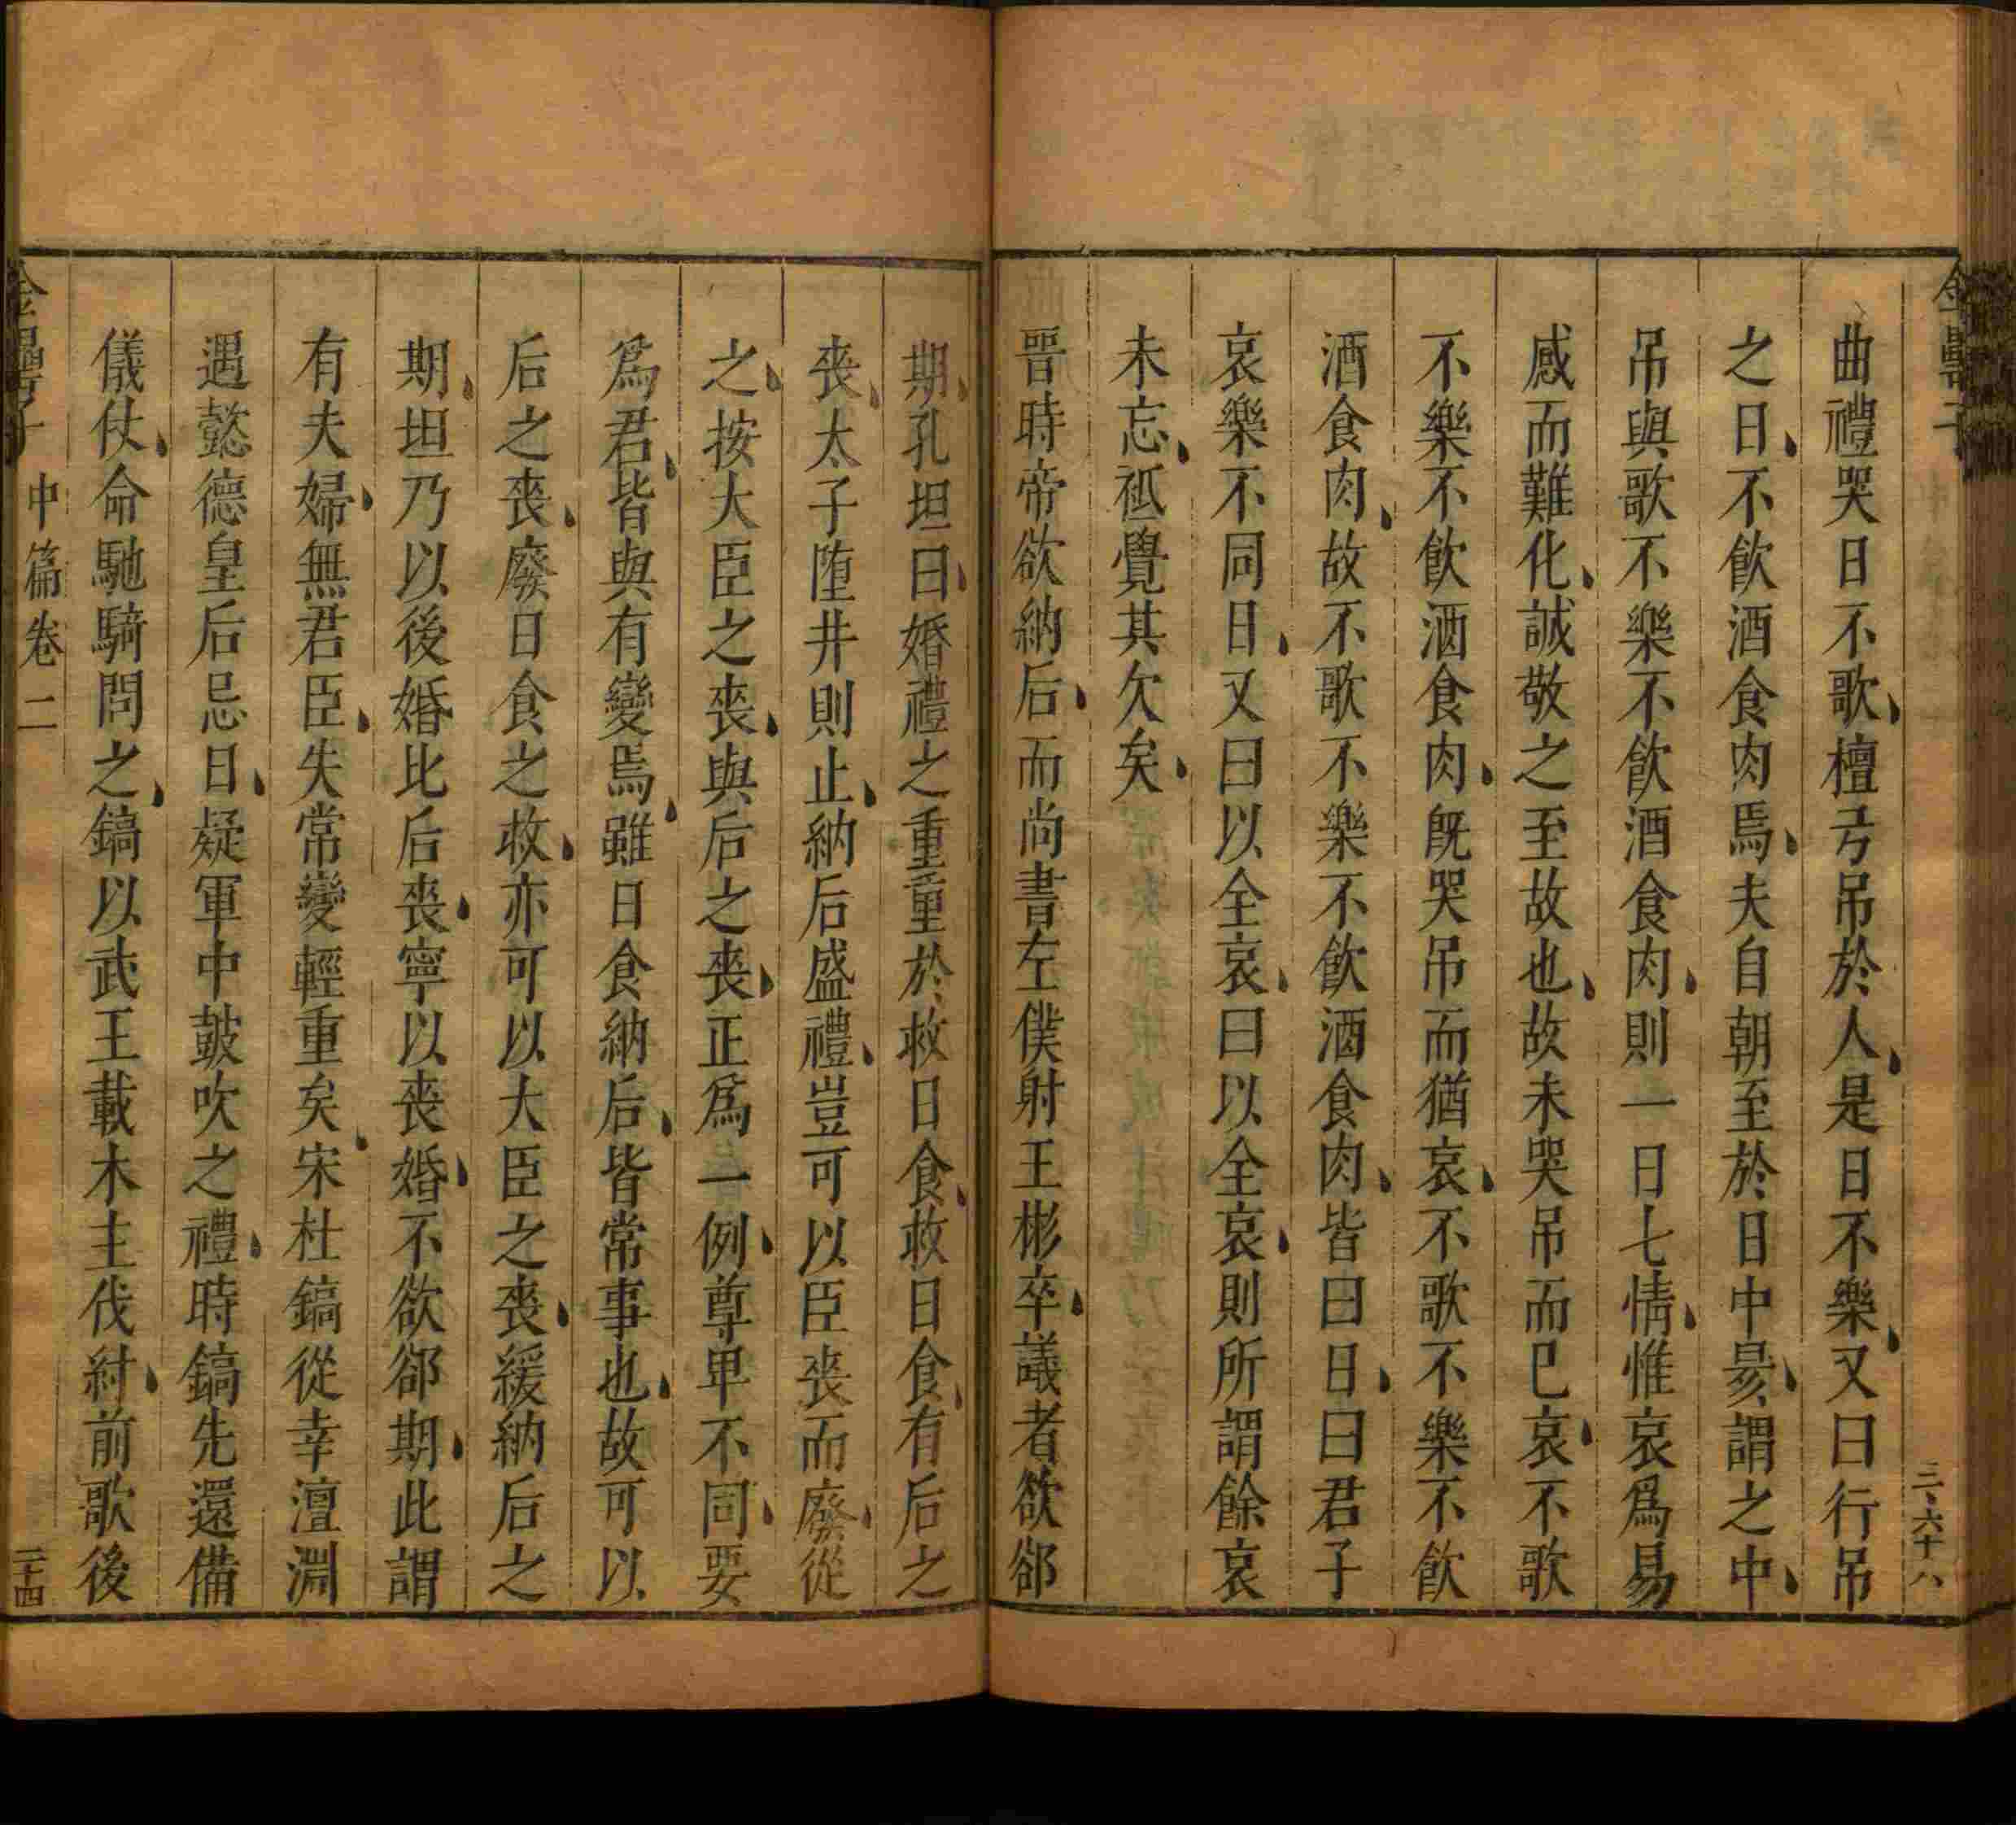 曲禮哭日不歌、檀弓吊於人、是日不樂、又曰行吊
之日、不飲酒食肉焉、夫自朝至於日中昃、謂之中、
吊與歌不樂不飲酒食肉、則一日七情、惟哀爲易
感而難化、誠敬之至故也、故未哭吊而已哀、不歌
不樂不飲酒食肉、旣哭吊而猶哀、不歌不樂不飲
酒食肉、故不歌不樂不飲酒食肉、皆曰日、曰君子
哀樂不同日、又曰以全哀、曰以全哀、則所謂餘哀
未忘、祗覺其欠矣、
晉時帝欲納后、而尚書左僕射王彬卒、議者欲郤
期、孔坦曰、婚禮之重重於救日食、救日食、有后之
喪、太子墮井則止、納后盛禮、豈可以臣喪而廢、從
之、按大臣之喪、與后之喪、正爲一例、尊卑不同、要
爲君、皆與有變焉、雖日食納后、皆常事也、故可以
后之喪、廢日食之救、亦可以大臣之喪、緩納后之
期、坦乃以後婚比后喪、寧以喪婚、不欲郤期、此謂
有夫婦、無君臣、失常變輕重矣、宋杜鎬從幸澶淵
遇懿德皇后忌日、疑軍中鼓吹之禮、時鎬先還備
儀仗、命馳騎問之、鎬以武王載木主伐紂、前歌後
中篇卷二
二十四
三、六十八